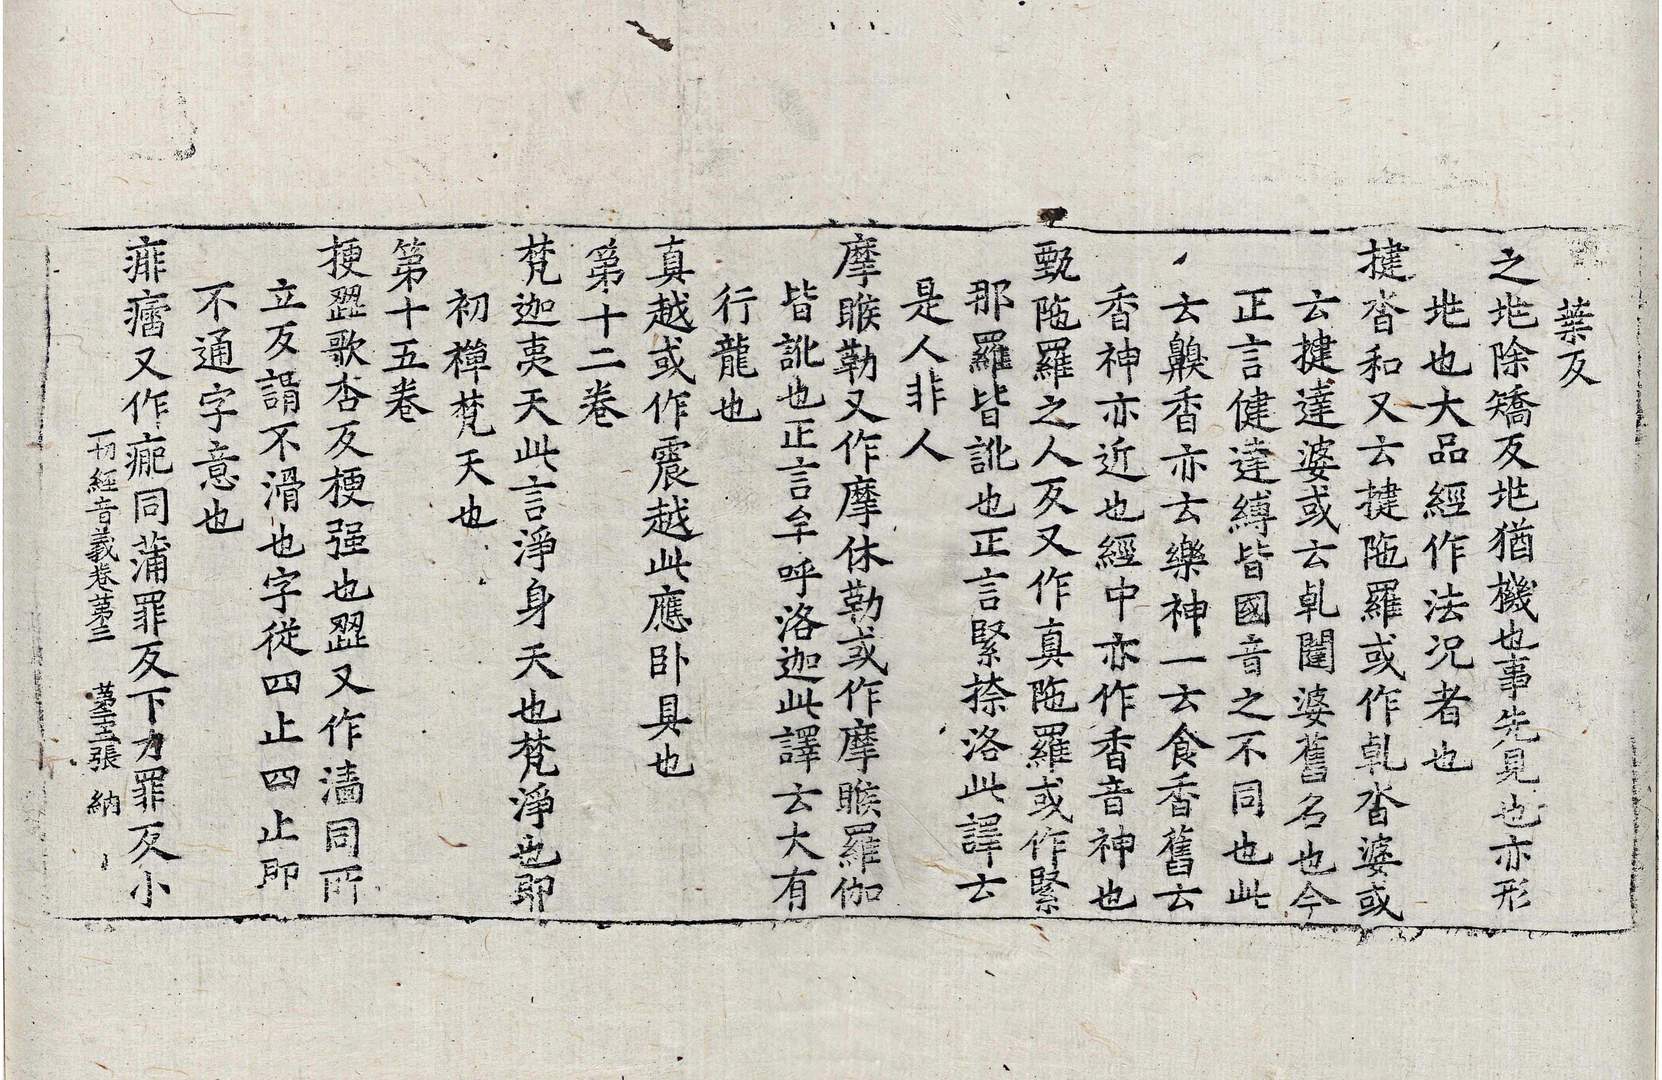 葉反
之㞢除矯反㞢猶機也事先見也亦形
㞢也大品經作法况者也
揵沓和又云揵陁羅或作乹沓婆或
云揵達婆或云乹闥婆舊名也今
正言健達縛皆國音之不同也此
云齅香亦云樂神一云食香舊云
香神亦近也經中亦作香音神也
甄陁羅之人反又作真陁羅或作緊
那羅皆訛也正言緊捺洛此譯云
是人非人
摩睺勒又作摩休勒或作摩睺羅伽
皆訛也正言牟呼洛迦此譯云大有
行龍也
真越或作震越此應卧具也
第十二卷
梵迦夷天此言淨身天也梵淨也即
初禪梵天也
第十五卷
梗澀歌杏反梗强也澀又作濇同所
立反謂不滑也字從四止四止即
不通字意也
痱癗又作疪同蒲罪反下力罪反小
一切經音義卷第三 第三張 納